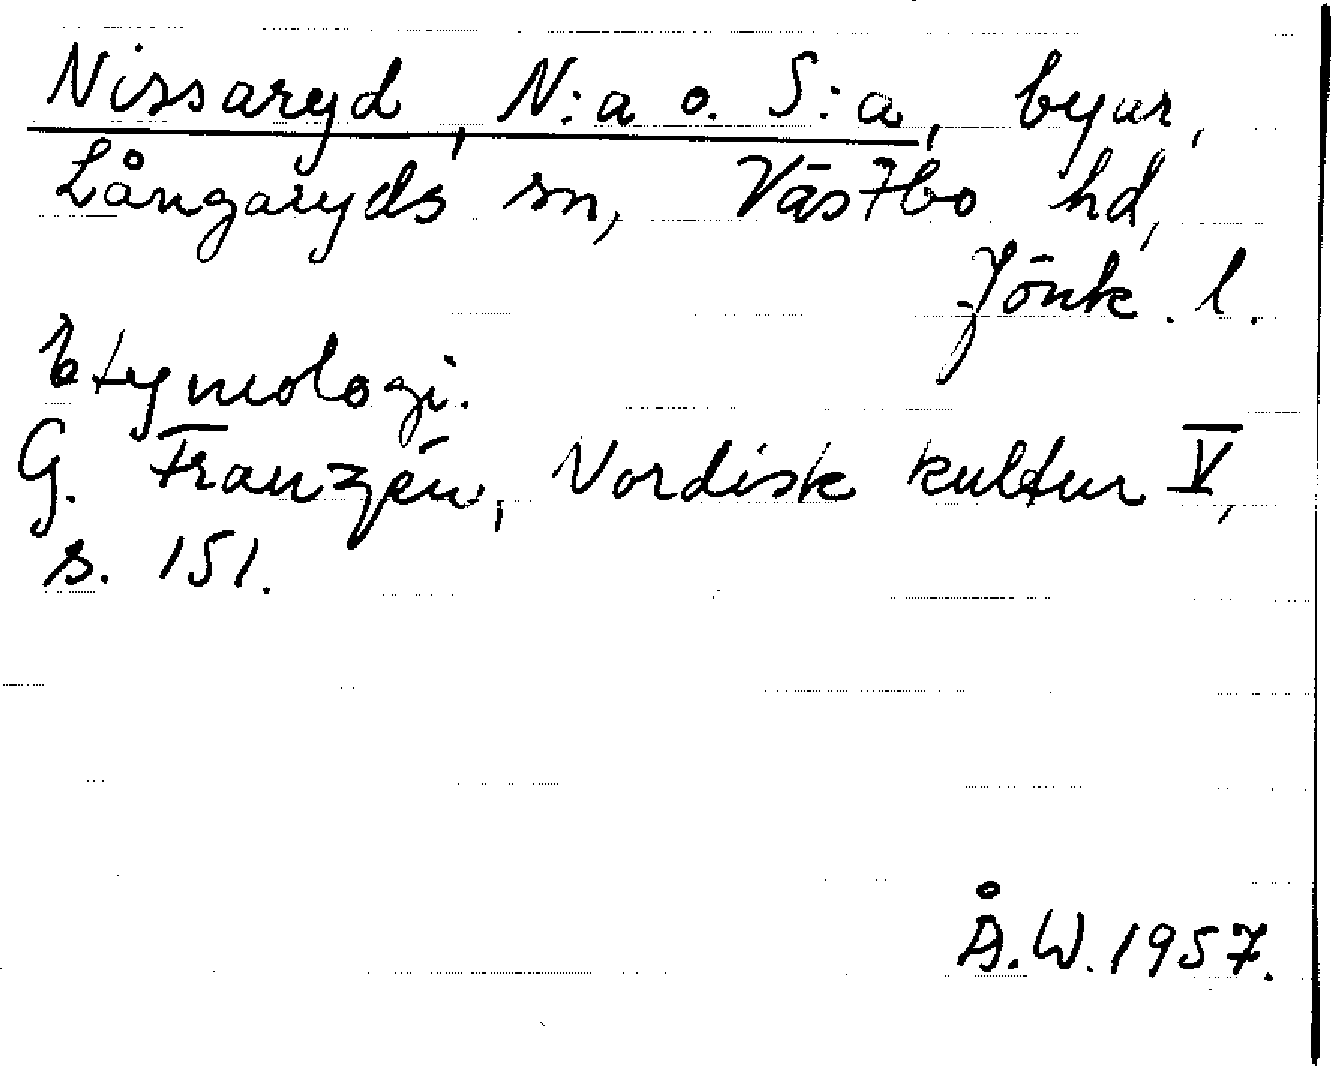 Nissaryd, N:a o. S:a, byar,
Långaryds sn, Västbo hd,
Jönk. l.
Etymologi.
G. Franzén, Nordisk kultur V,
s. 151.
Å.W. 1957.